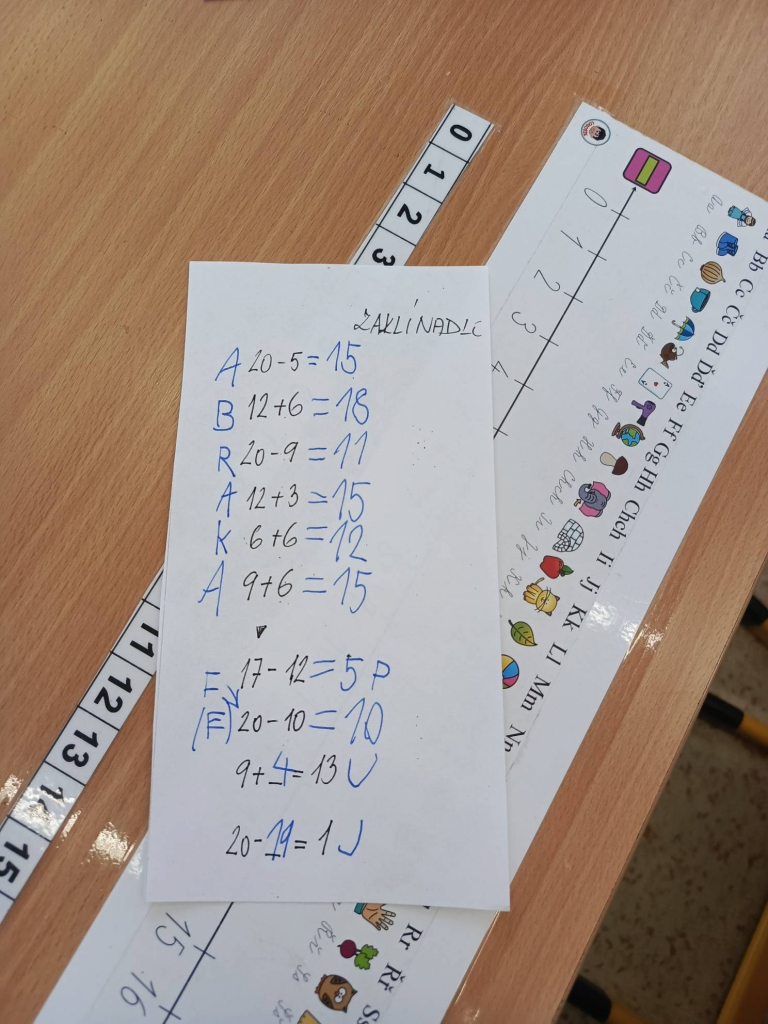 0 1 2 3
0 1 2 3 4
Bb Cc Čč Dd Ďď Ee Ff Gg Hh Chch Ii Jj Kk Ll Mm Nn
ZAKLÍNADLO
A 20-5=15
B 12+6=18
R 20-9=11
A 12+3=15
K 6+6=12
A 9+6=15
F 17-12=5 P
(F) 20-10=10
9+4=13 U
20-19=1 J
11 12 13 14 15
15 16
Rr Řř Ss